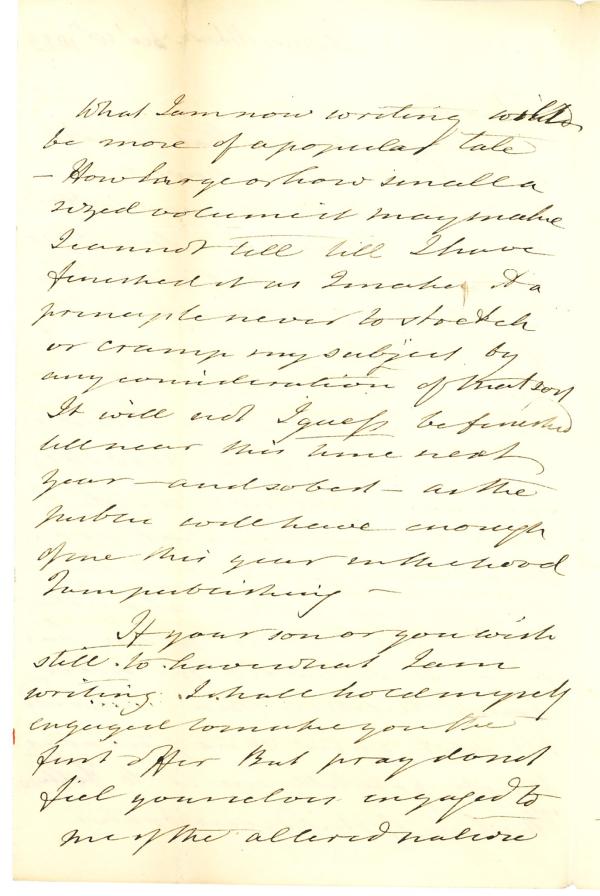 What I am now writing will
be more of a popular tale
– How large or how small a
sized volume it may make
I cannot tell till I have
finished it as I make it a
principle never to stretch
or cramp my subject by
any consideration of that sort
It will not I guess be finished
till near this time next
year – and so best – as the
public will have enough
of me this year in the
I am publishing –
If your son or you wish
still to have what I am
writing I shall hold myself
engaged to make you the
first offer But pray do not
feel yourselves engaged to
me if the altered nature